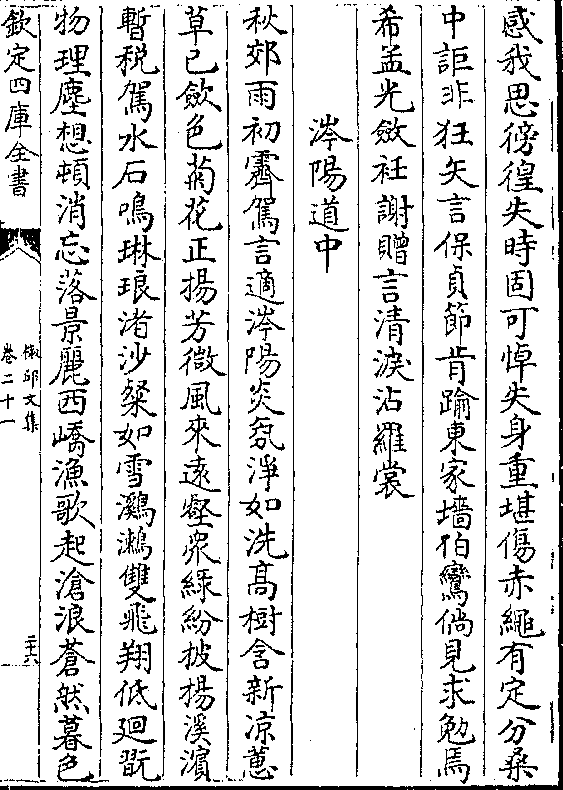 感我思徬徨失時固可悼失身重堪傷赤繩有定分桑
中詎非狂矢言保貞節肯踰東家墻狛鸞倘見求勉焉
希孟光斂衽謝贈言清淚沾羅裳
涔陽道中
秋郊雨初霽駕言適涔陽炎氛淨如洗高樹含新凉蕙
草已斂色菊花正揚芳微風來遠壑衆綠紛披楊溪濵
暫税駕水石鳴琳琅渚沙粲如雪鸂鶒雙飛翔低廻翫
物理塵想頓消忘落景麗西嶠漁歌起滄浪蒼然暮色
欽定四庫全書
椒邱文集
卷二十一
二十六